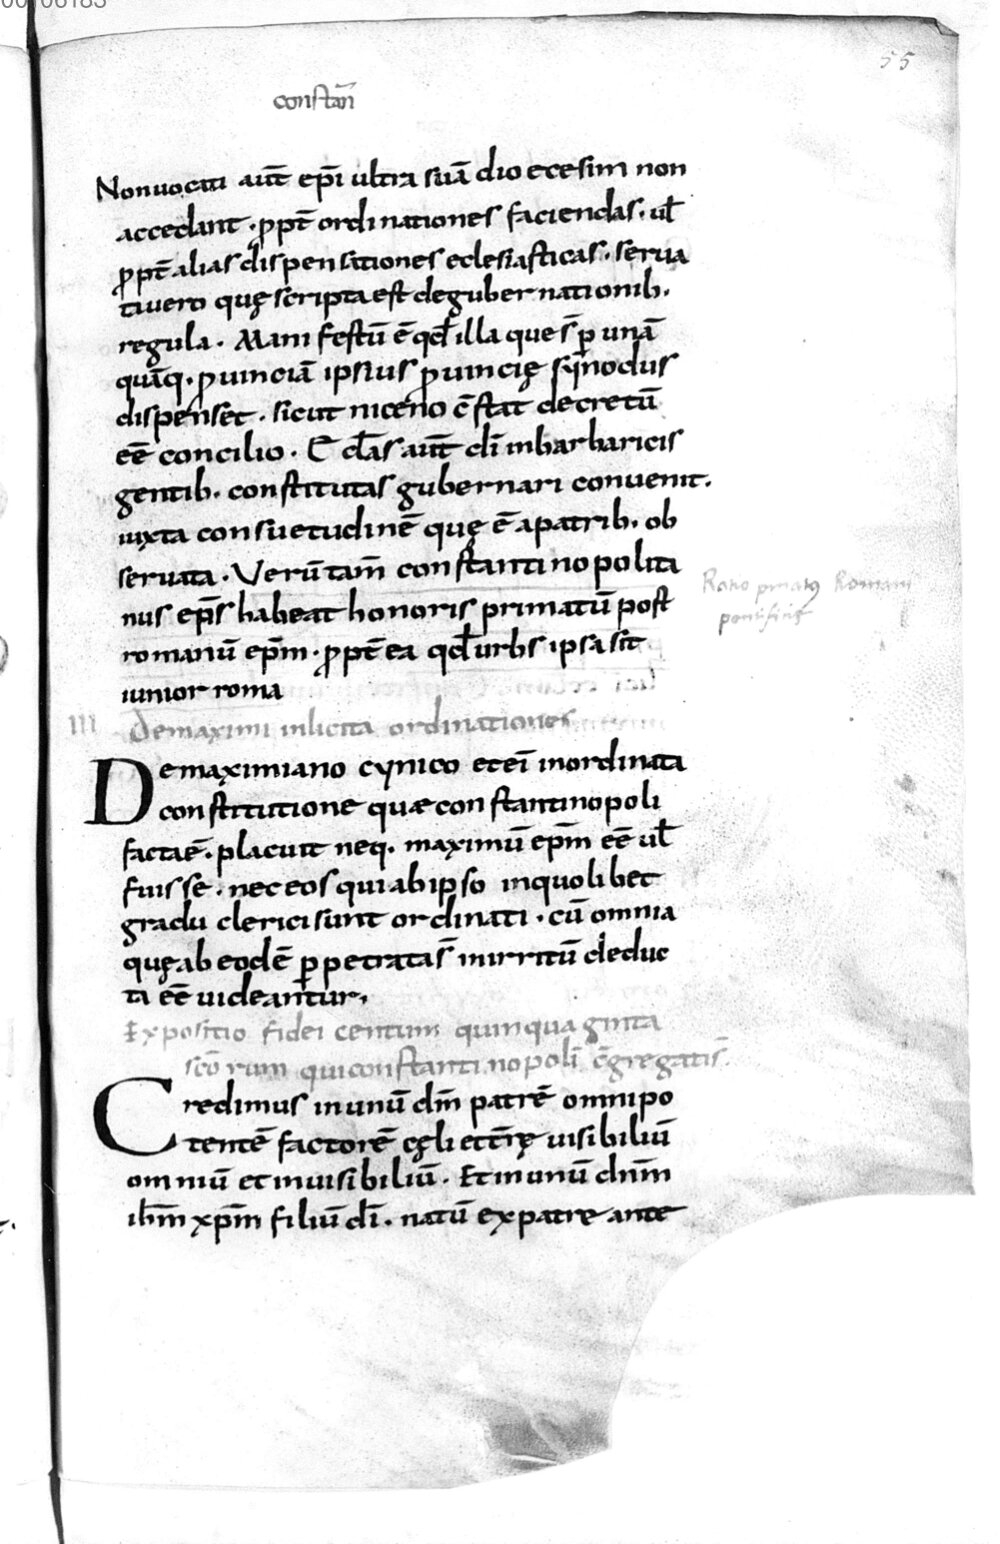 55
constañ
Non uocati aut̄ ep̄i ultra suā dioecesim non
accedant · ꝓpt̄ ordinationes faciendas · ul̄
ꝓpt̄ alias dispensationes eclesiasticas · serua
ta uero quę scripta est de gubernationib·
regula · Manifestū ē qd̄ illa que s̄ p̱ unā
quāq· ꝓuinciā ipsius ꝓuincię synodus
dispenset · sicut niceno c̄stat decretū
eē concilio · Ecl̄as aut̄ dī in barbaricis
gentib· constitutas gubernari conuenit·
iuxta consuetudinē quę ē a patrib· ob
seruata · Verūtam̄ constantinopolita
nus ep̄s habeat honoris primatū post
romanū ep̄m · ꝓpt̄ ea qd̄ urbs ipsa sit
iunior roma
Romani
pontificis
III De maximi inlicita ordinationes
De maximiano cynico et eī inordinata
constitutione quæ constantinopoli
facta ē · placuit neq· maximū ep̄m eē ul̄
fuisse · nec eos qui ab ipso in quolibet
gradu clerici sunt ordinati · cū omnia
quę ab eodē p̱petrata s̄ in irritū deduc
ta eē uideantur·
Expositio fidei centum quinquaginta
sc̄orum qui constantinopolī c̄gregati s̄·
Credimus in unū dm̄ patrē omnipo
tentē factorē cęli et t̄rę uisibiliū
omniū et inuisibiliū · Et in unū dnm̄
ihm̄ xp̄m filiū dī · natū ex patre ante